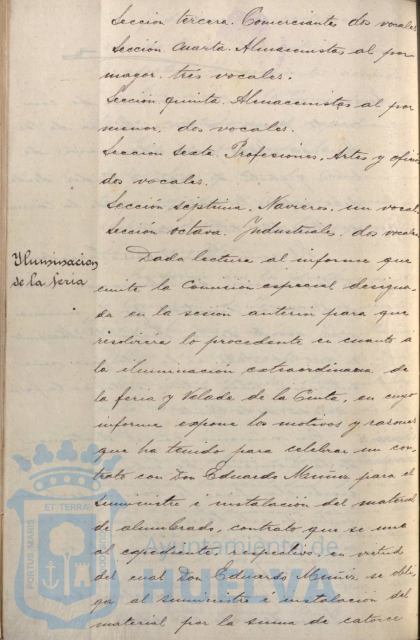 Seccion tercera. Comerciantes dos vocales
Sección Cuarta. Almacenistas al por
mayor. tres vocales.
Sección quinta. Almacenistas al por
menor. dos vocales.
Seccion Sexta. Profesiones, Artes y oficios
dos vocales.
Sección septima. Navieros. un vocal
Sección octava. Industriales. dos vocales
Yluminacion
de la feria
Dada lectura al informe que
emite la Comisión especial designa-
da en la sesión anterior para que
resolviera lo procedente en cuanto a
la iluminación extraordinaria de
la feria y Velada de la Cinta, en cuyo
informe expone los motivos y razones
que ha tenido para celebrar un con-
trato con Don Eduardo Muñiz para el
suministro é instalación del material
de alumbrado, contrato que se une
al expediente respectivo, en virtud
del cual Don Eduardo Muñiz se obli-
ga al suministro é instalación del
material por la suma de catorce
PORTUS MARIS
ET TERRAE
Ayuntamiento de
HUELVA